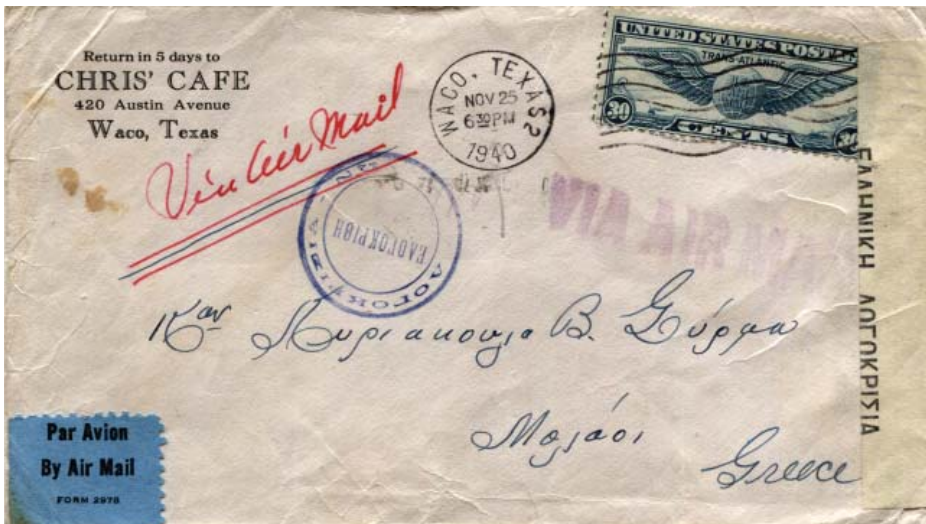 Return in 5 days to
CHRIS' CAFE
420 Austin Avenue
Waco, Texas
Via Air Mail
WACO, TEXAS 2
NOV 25
6 30 PM
1940
UNITED STATES POSTAGE
TRANS-ATLANTIC
30 CENTS 30
ΛΟΓΟΚΡΙΣΙΑ
ΕΛΟΓΟΚΡΙΘΗ
VIA AIR MAIL
ΕΛΛΗΝΙΚΗ ΛΟΓΟΚΡΙΣΙΑ
Καν Κυριακούλα Β.
Μολάοι
Greece
Par Avion
By Air Mail
FORM 2978